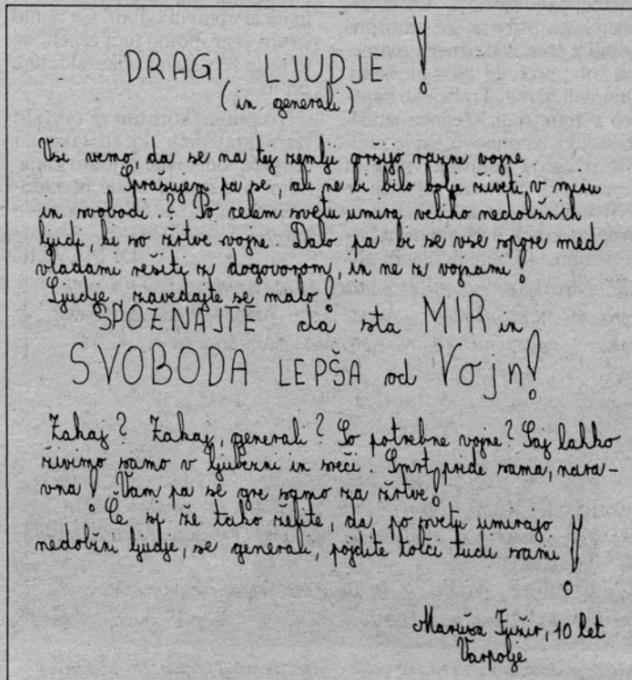 DRAGI LJUDJE!
(in generali)
Vsi vemo, da se na tej zemlje vršijo razne vojne
Sprašujem pa se, ali ne bi bilo bolje živeti v miru
in svobodi.? Po celem svetu umira veliko nedolžnih
ljudi, ki so žrtve vojne. Dalo pa bi se vse spore med
vladami rešiti z dogovorom, in ne z vojnami!
Ljudje, zavedajte se malo!
SPOZNAJTE da sta MIR in
SVOBODA LEPŠA od Vojn!
Zakaj? Zakaj, generali? So potrebne vojne? Saj lahko
živimo samo v ljubezni in sreči. Smrt pride sama, nara-
vna! Vam pa se gre samo za žrtve!
Če si že tako želite, da po svetu umirajo
nedolžni ljudje, se generali, pojdite tolči tudi sami!
Maruša 10 let
Varpolje